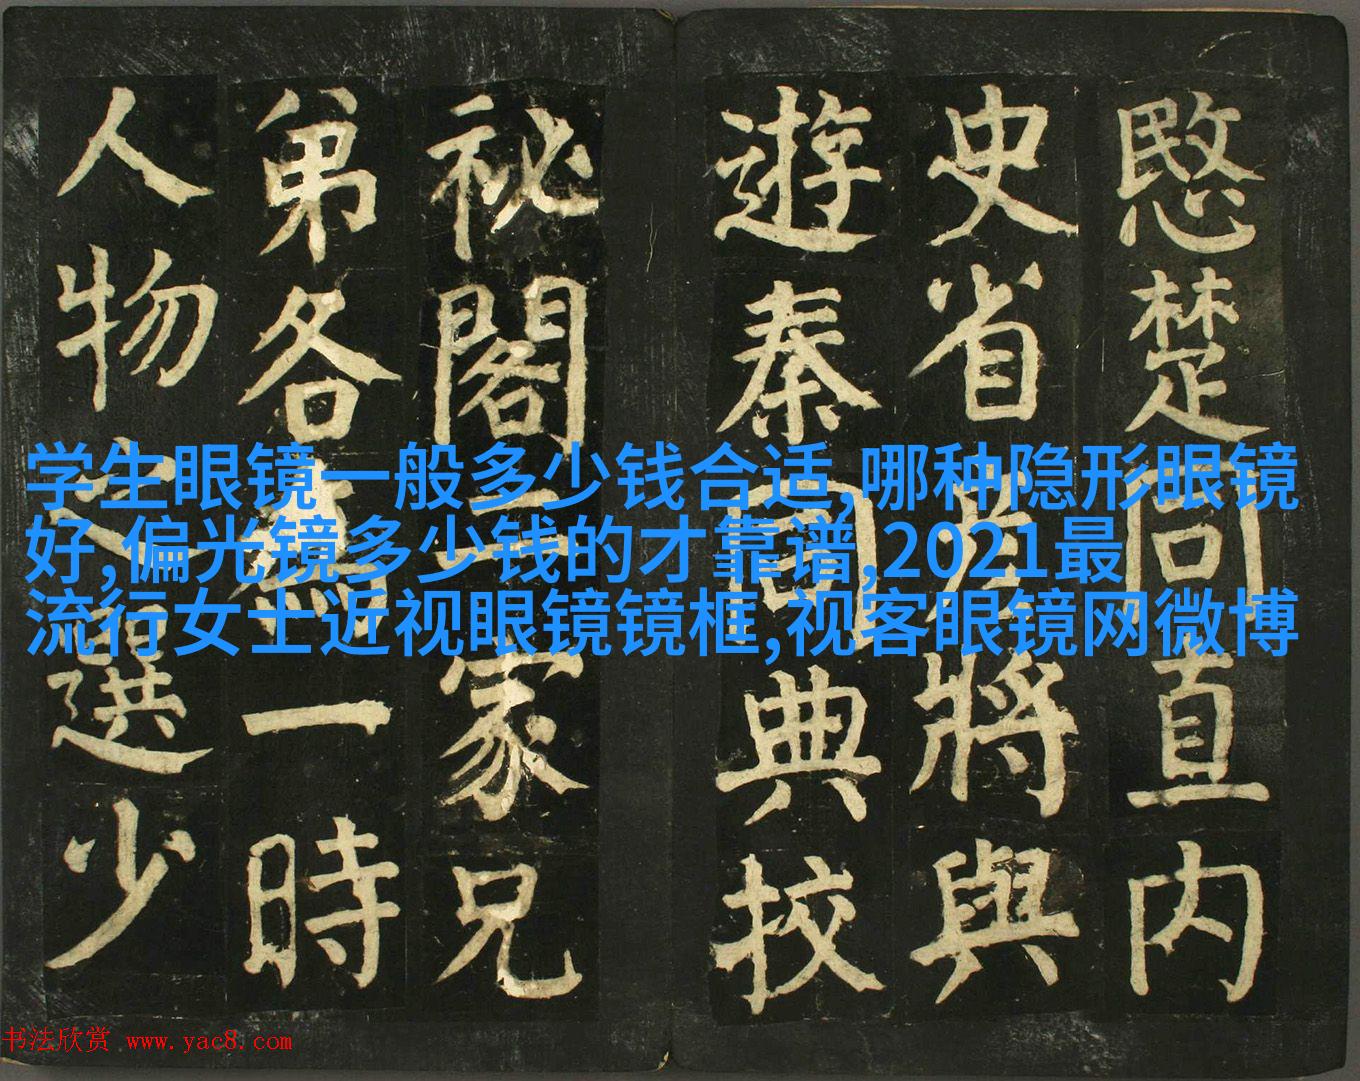 愍楚同直内
史省彦將與
遊秦同典校
祕閣二家兄
弟各為一時
人物之選少
学生眼镜一般多少钱合适,哪种隐形眼镜
好,偏光镜多少钱的才靠谱,2021最
流行女士近视眼镜镜框,视客眼镜网微博
书法欣赏 www.yac8.com